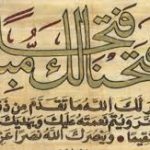 فتحا
فتحنا لك مب
لك الله ما تقدم من ذن
ويتم نعمته عليك ويهديك
قيما وينصرك الله نصرا عز